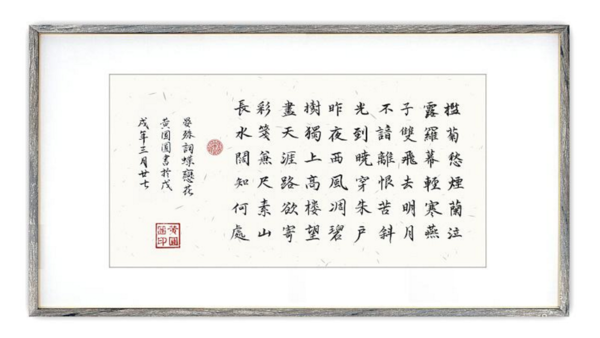 槛菊愁煙蘭泣
露羅幕輕寒燕
子雙飛去明月
不諳離恨苦斜
光到曉穿朱戶
昨夜西風凋碧
樹獨上高楼望
盡天涯路欲寄
彩笺兼尺素山
長水闊知何處
晏殊詞蝶戀花
黄圆圆書於戊
戌年三月廿七